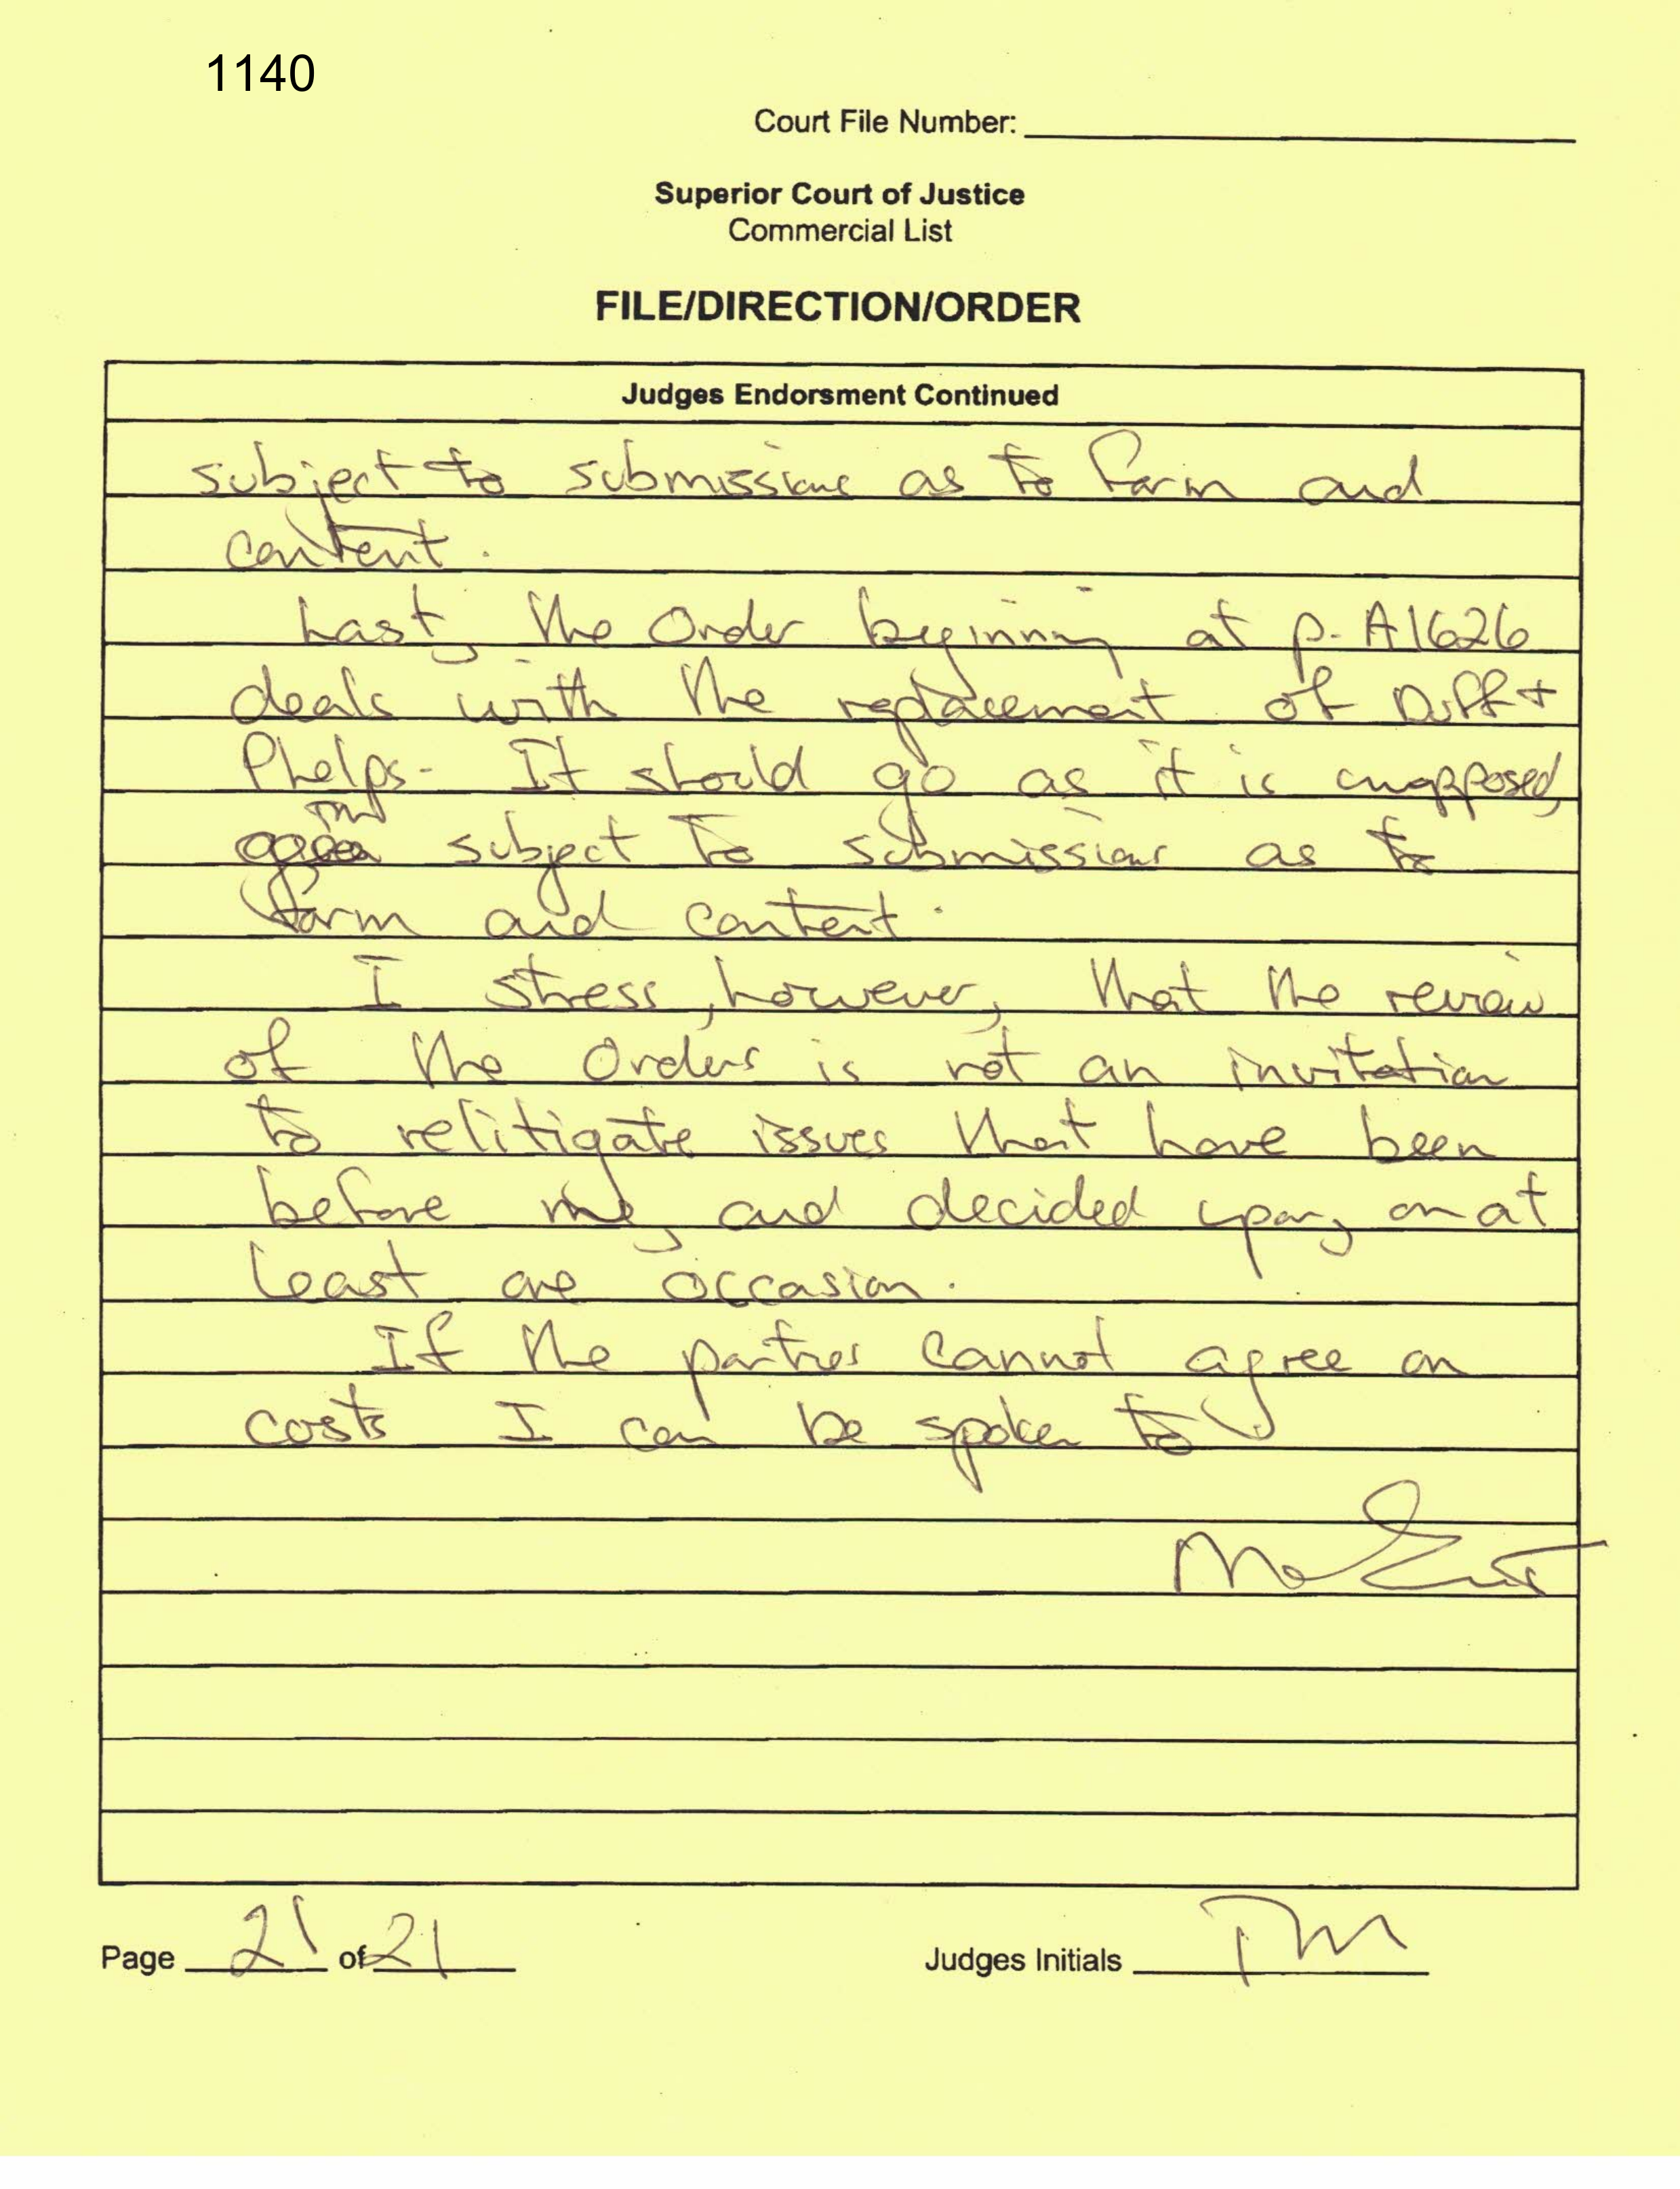 1140
Court File Number:
Superior Court of Justice
Commercial List
FILE/DIRECTION/ORDER
Judges Endorsment Continued
subject to submissions as to form and
content.
Last, the Order beginning at p. A1626
deals with the replacement of Duff +
Phelps. It should go as it is unopposed,
subject to submissions as to
form and content.
I stress, however, that the review
of the Orders is not an invitation
to relitigate issues that have been
before me, and decided upon, on at
least one occasion.
If the parties cannot agree on
costs I can be spoken to
Page 21 of 21
Judges Initials TM